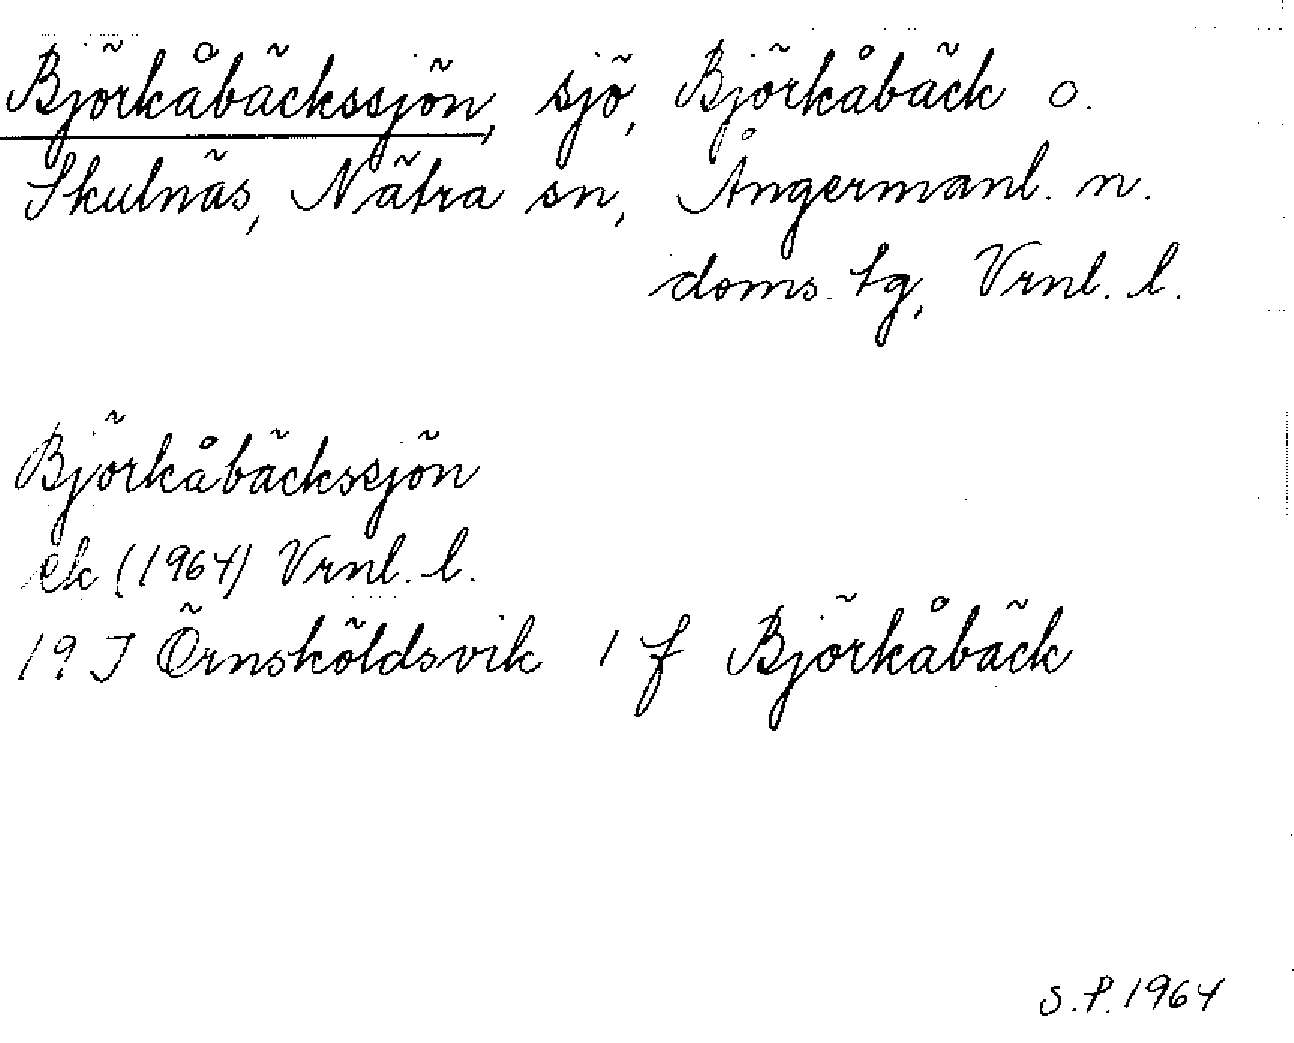 Björkåbäckssjön, sjö, Björkåbäck o.
Skulnäs, Nätra sn, Ångermanl. n.
doms. tg, Vrnl. l.
Björkåbäckssjön
ek (1964) Vrnl. l.
19 J Örnsköldsvik 1 f Björkåbäck
S.P. 1964